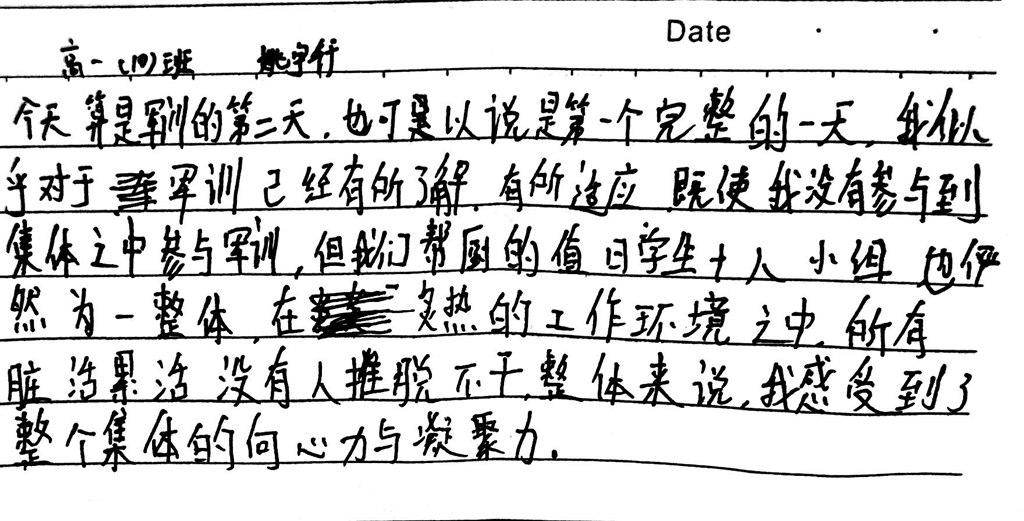 Date
高一(10)班 姚宇行
今天算是军训的第二天，也可是以说是第一个完整的一天，我似
乎对于军训已经有所了解，有所适应，既使我没有参与到
集体之中参与军训，但我们帮厨的值日学生十人小组也俨
然为一整体，在炙热的工作环境之中，所有
脏活累活没有人推脱不干，整体来说，我感受到了
整个集体的向心力与凝聚力.